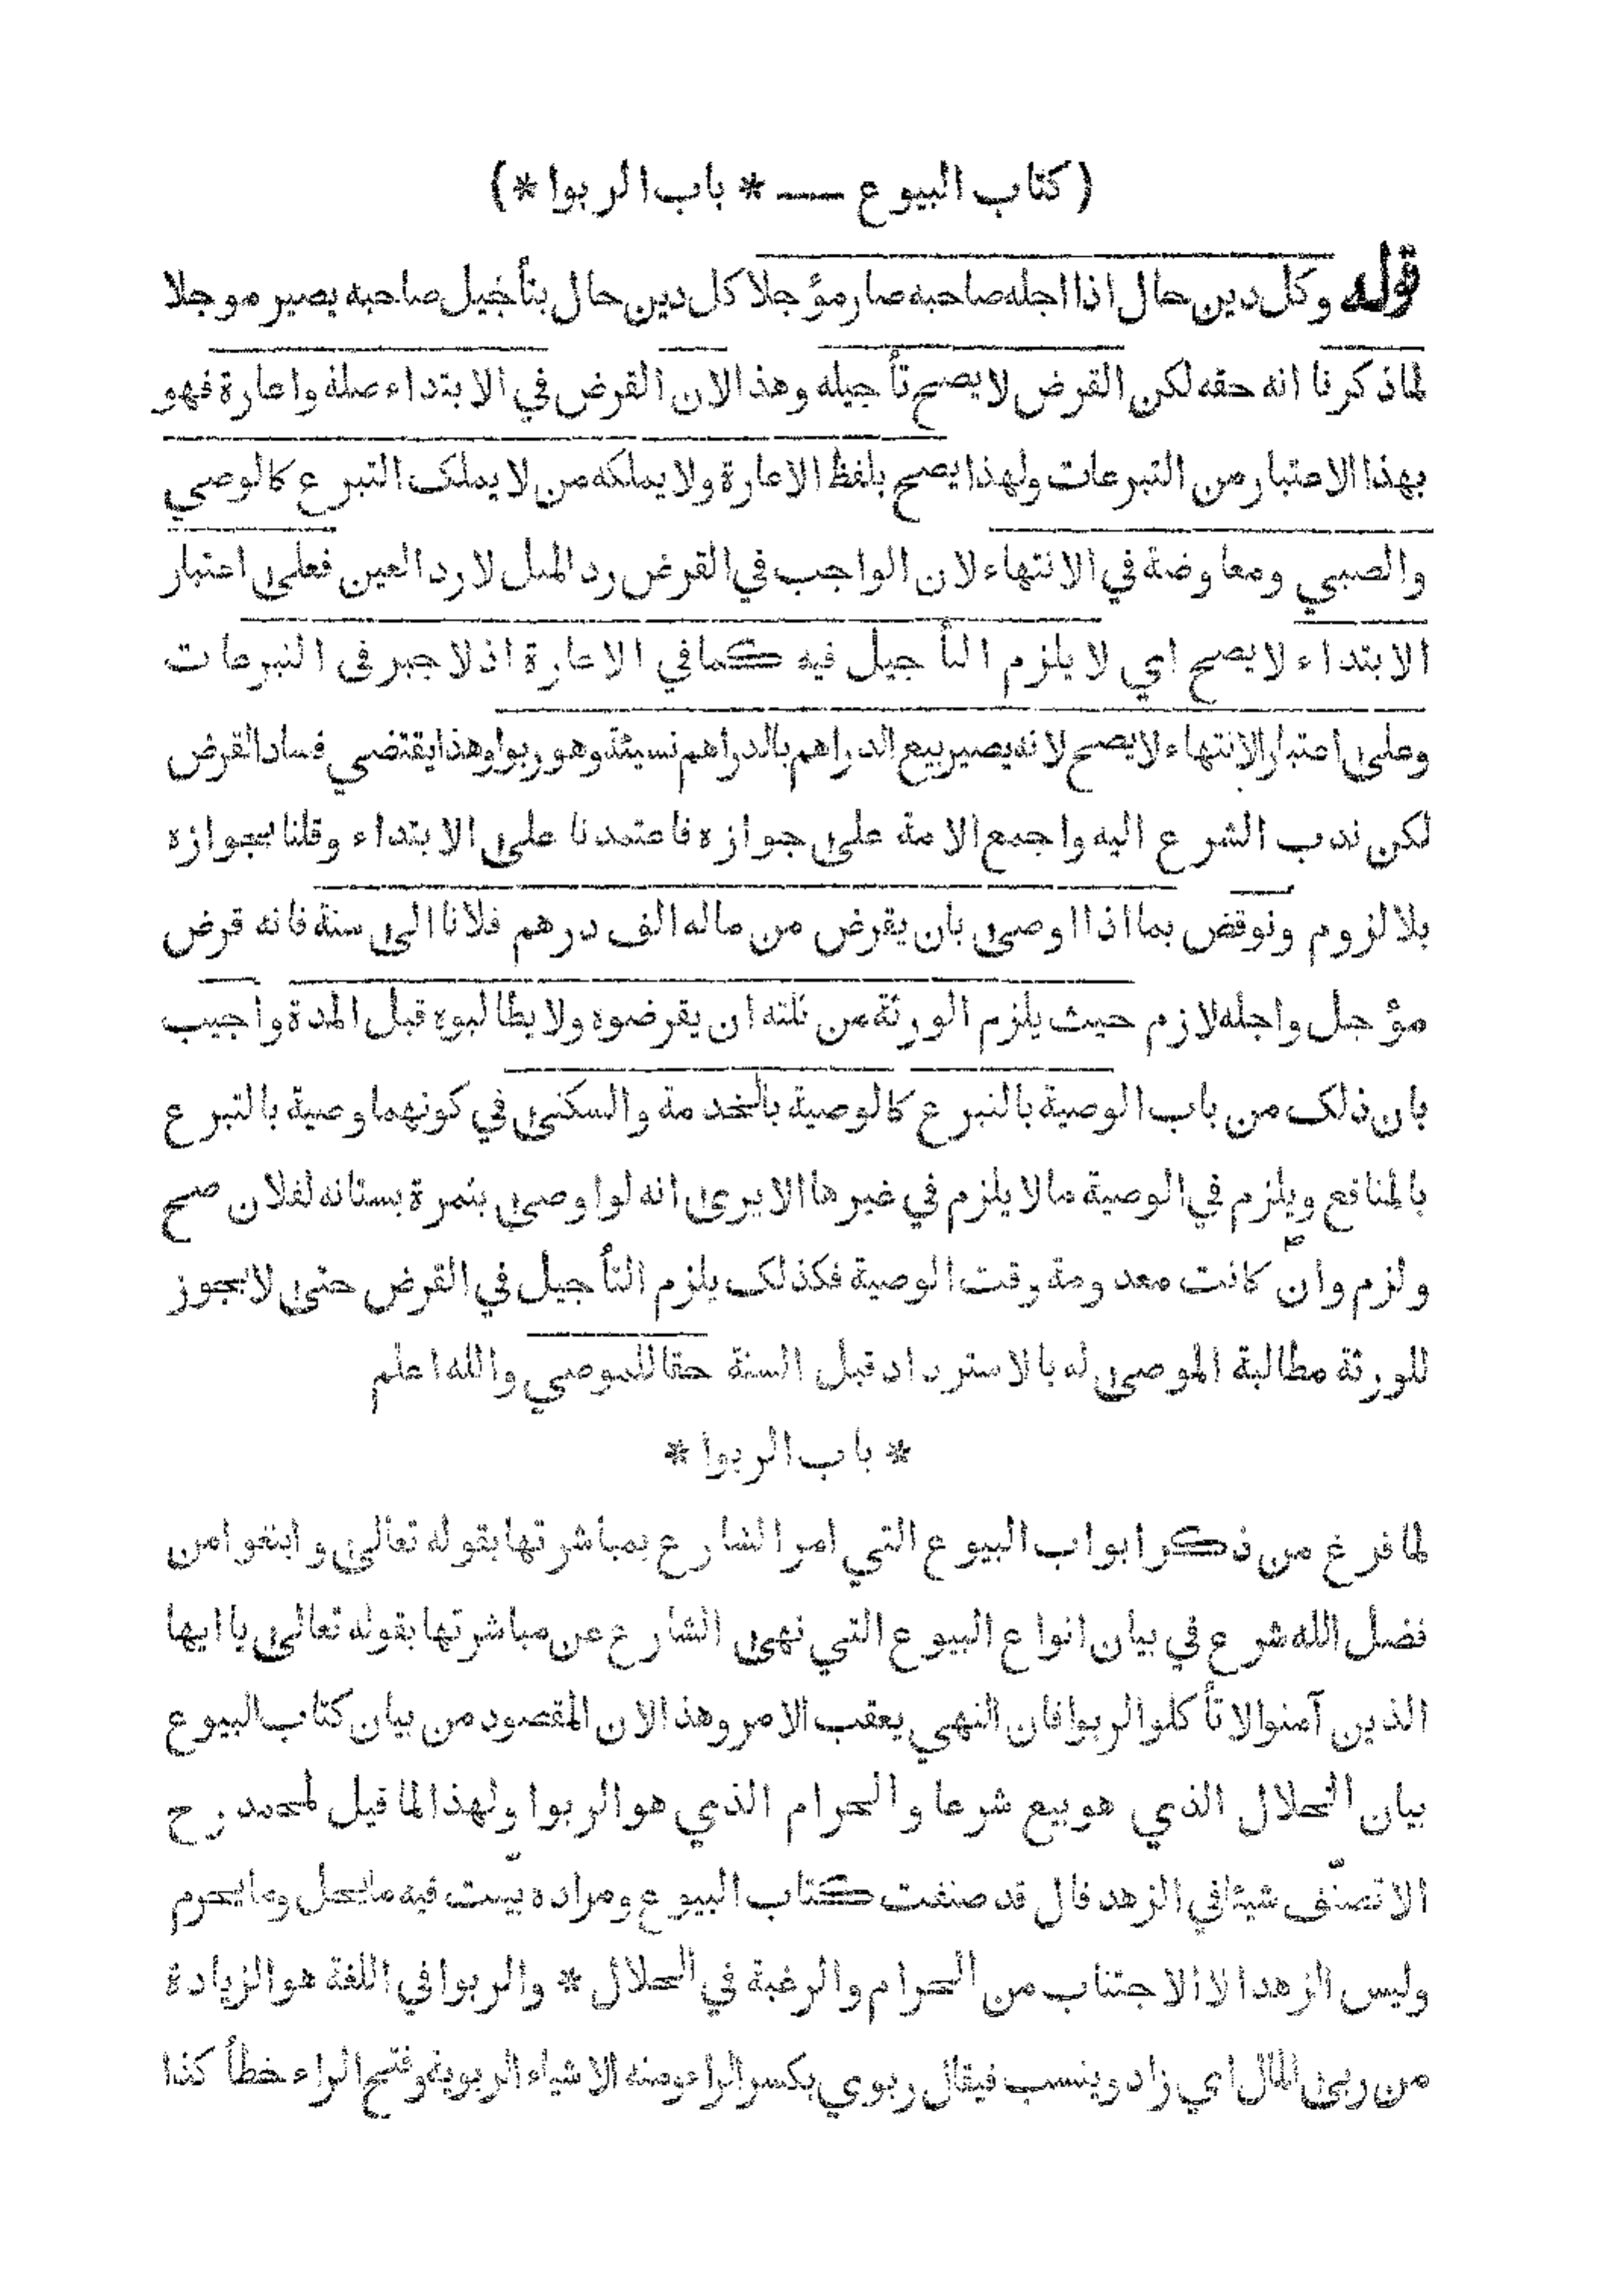 ( كتاب البيوع — * باب الربوا * )
قوله وكل دين حال اذا اجله صاحبه صار مؤجلا كل دين حال بتأجيل صاحبه يصير موجلا
لما ذكرنا انه حقه لكن القرض لا يصح تأجيله وهذا لان القرض في الابتداء صلة واعارة فهو
بهذا الاعتبار من التبرعات ولهذا يصح بلفظ الاعارة ولا يملكه من لا يملك التبرع كالوصي
والصبي ومعاوضة في الانتهاء لان الواجب في القرض رد المثل لا رد العين فعلى اعتبار
الابتداء لا يصح اي لا يلزم التأجيل فيه كما في الاعارة اذ لا جبر فى التبرعات
وعلى اعتبار الانتهاء لا يصح لانه يصير بيع الدراهم بالدراهم نسيئة وهو ربوا وهذا يقتضي فساد القرض
لكن ندب الشرع اليه واجمع الامة على جوازه فاعتمدنا على الابتداء وقلنا بجوازه
بلا لزوم ونوقض بما اذا اوصى بان يقرض من ماله الف درهم فلانا الى سنة فانه قرض
مؤجل واجله لازم حيث يلزم الورثة من ثلثه ان يقرضوه ولا يطالبوه قبل المدة واجيب
بان ذلك من باب الوصية بالتبرع كالوصية بالخدمة والسكنى في كونهما وصية بالتبرع
بالمنافع ويلزم في الوصية ما لا يلزم في غيرها الا يرى انه لو اوصى بثمرة بستانه لفلان صح
ولزم وان كانت معدومة وقت الوصية فكذلك يلزم التأجيل في القرض حتى لا يجوز
للورثة مطالبة الموصى له بالاسترداد قبل السنة حقا للموصي والله اعلم
* باب الربوا *
لما فرغ من ذكر ابواب البيوع التي امر الشارع بمباشرتها بقوله تعالى وابتغوا من
فضل الله شرع في بيان انواع البيوع التي نهى الشارع عن مباشرتها بقوله تعالى يا ايها
الذين آمنوا لا تأكلوا الربوا فان النهي يعقب الامر وهذا لان المقصود من بيان كتاب البيوع
بيان الحلال الذي هو بيع شرعا والحرام الذي هو الربوا ولهذا لما قيل لمحمد رح
الا تصنّف شيئا في الزهد قال قد صنفت كتاب البيوع ومراده بيّنت فيه ما يحل وما يحرم
وليس الزهد الا الاجتناب من الحرام والرغبة في الحلال * والربوا في اللغة هو الزيادة
من ربى المال اي زاد وينسب فيقال ربوي بكسر الراء ومنه الاشياء الربوية وفتح الراء خطأ كذا